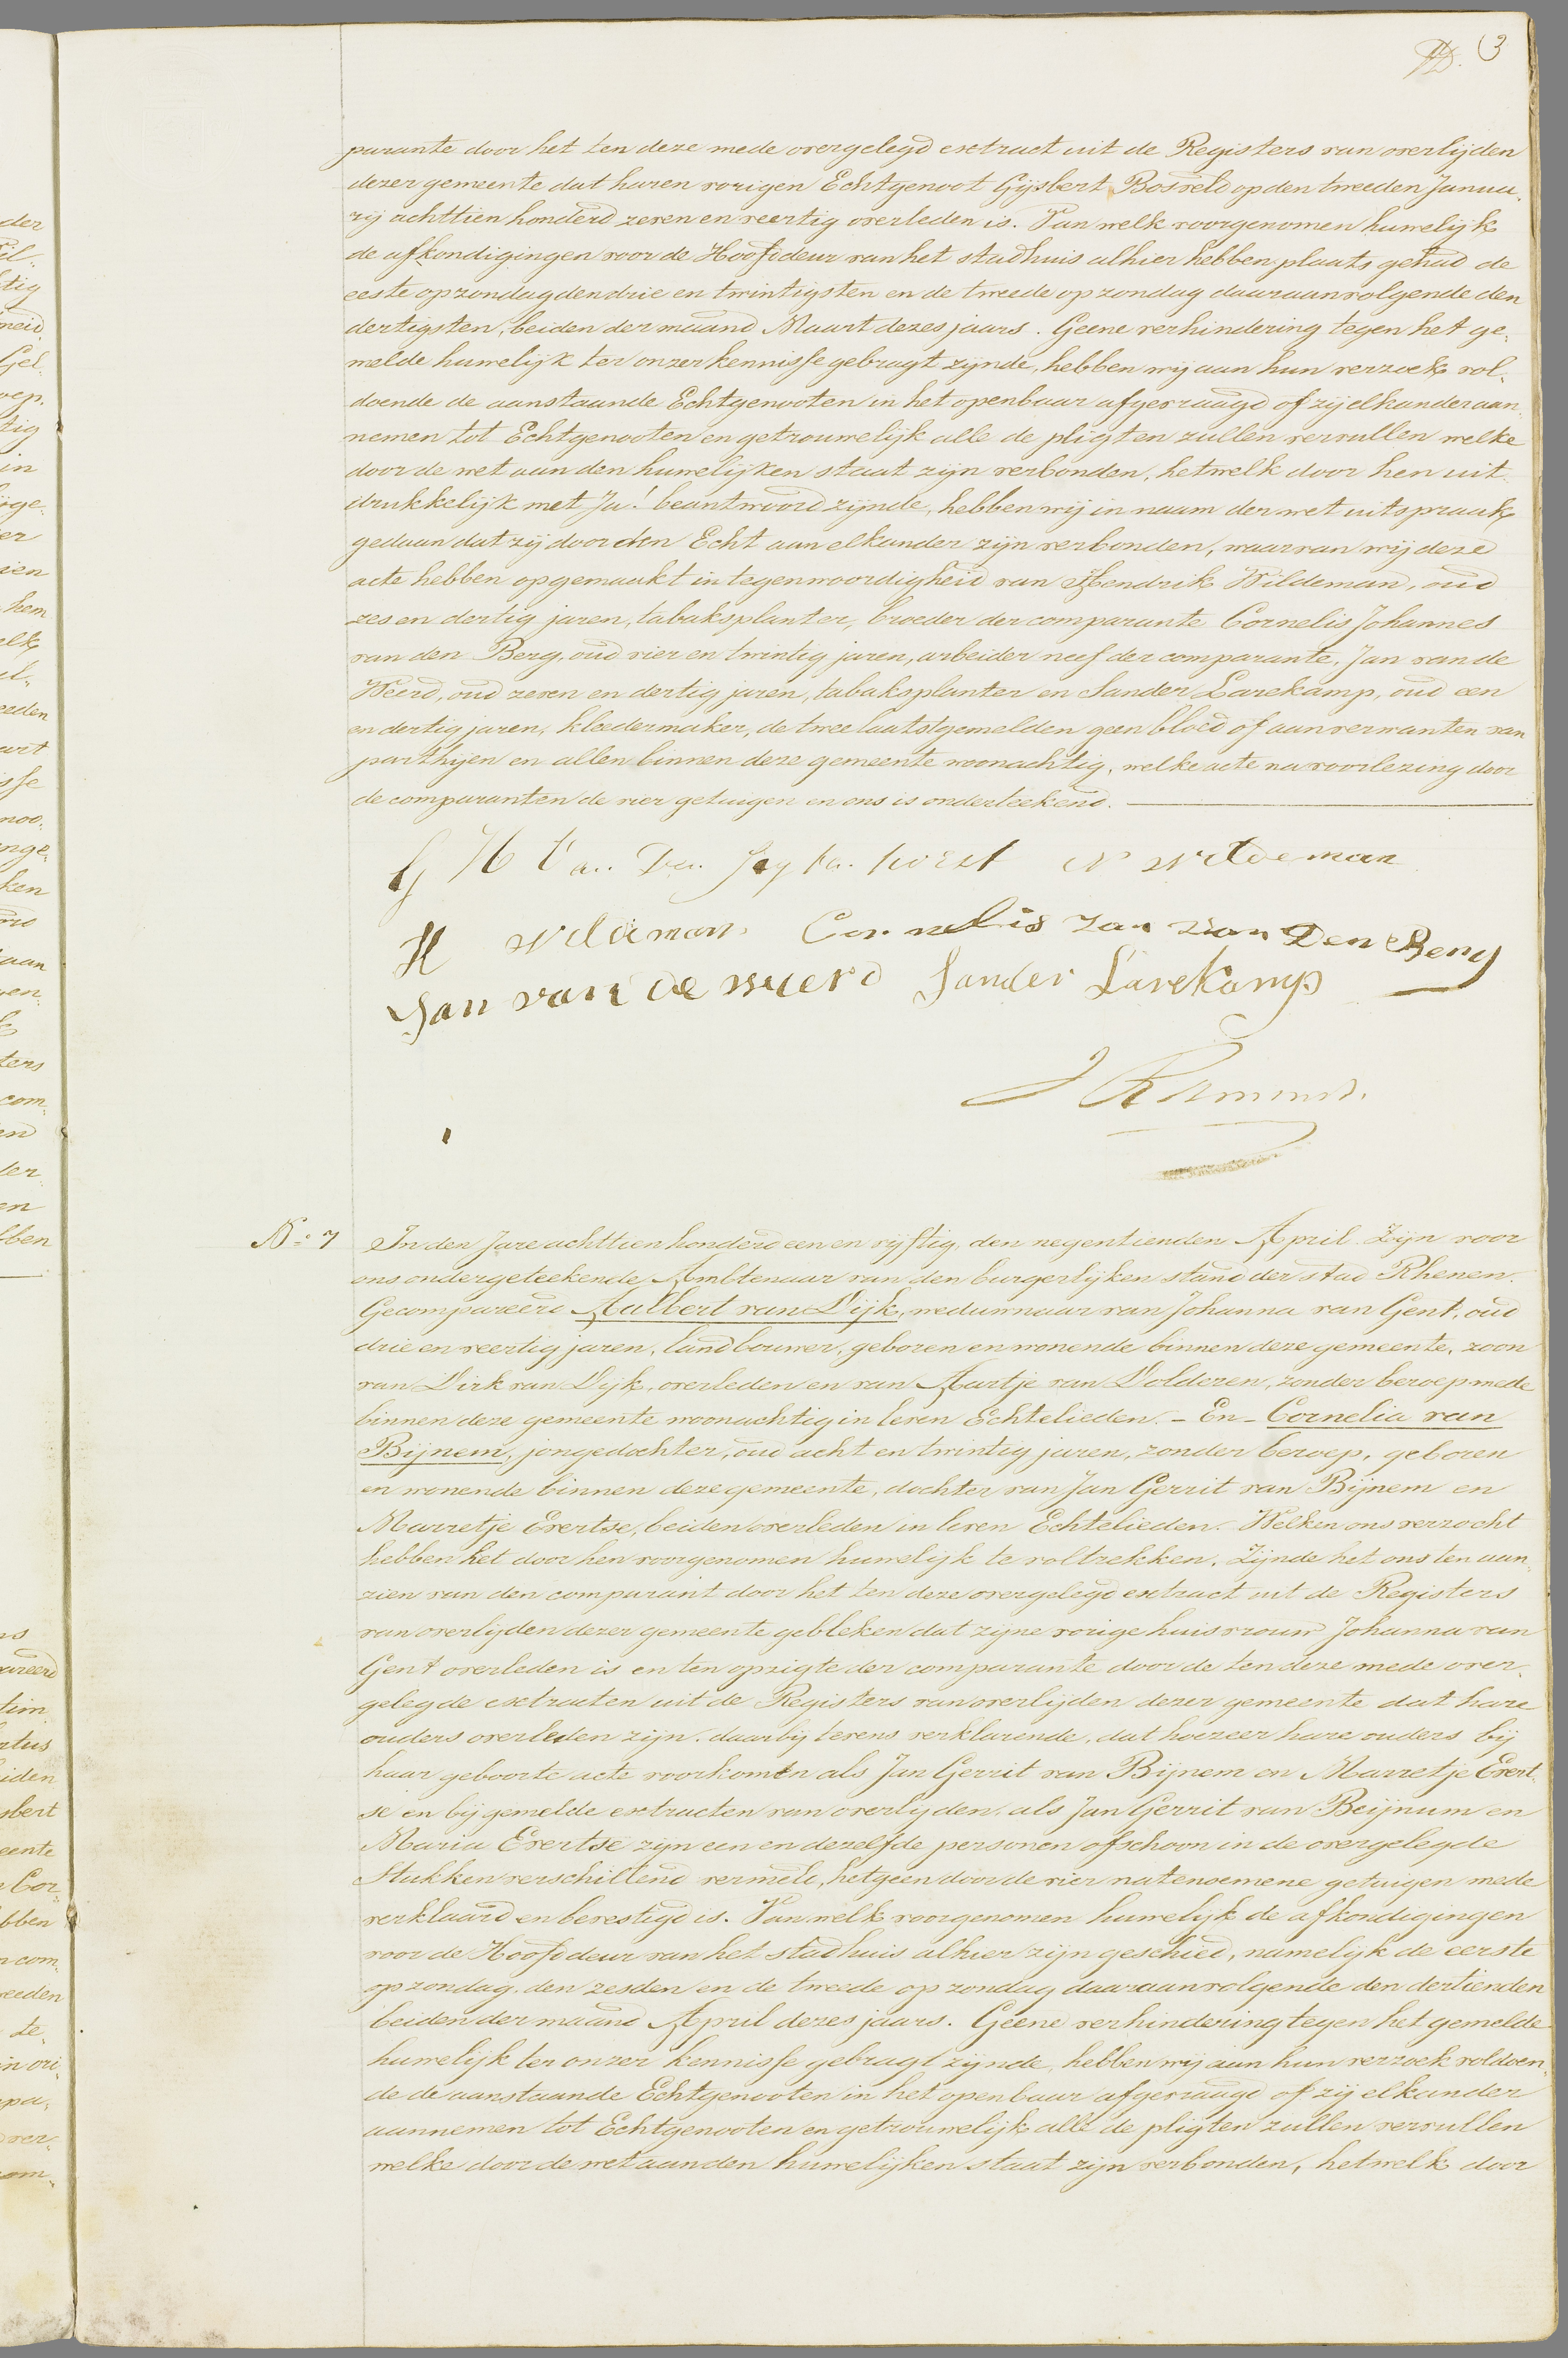 3
parante door het ten deze mede overgelegd extract uit de Registers van overlijden
dezer gemeente dat haren vorigen Echtgenoot Gijsbert Bosveld op den tweeden Janua-
rij achttien honderd zeven en veertig overleden is. Van welk voorgenomen huwelijk
de afkondigingen voor de Hoofddeur van het stadhuis alhier hebben plaats gehad de
eeste op zondag den drie en twintigsten en de tweede op zondag daaraanvolgende den
dertigsten, beiden der maand Maart dezes jaars. Geene verhindering tegen het ge-
melde huwelijk ter onzer kennisse gebragt zijnde, hebben wij aan hun verzoek vol-
doende de aanstaande Echtgenooten in het openbaar afgevraagd of zij elkander aan-
nemen tot Echtgenooten en getrouwelijk alle de pligten zullen vervullen welke
door de wet aan den huwelijken staat zijn verbonden, hetwelk door hen uit-
drukkelijk met Ja! beantwoord zijnde, hebben wij in naam der wet uitspraak
gedaan dat zij door den Echt aan elkander zijn verbonden, waarvan wij deze
acte hebben opgemaakt in tegenwoordigheid van Hendrik Wildeman, oud
zes en dertig jaren, tabaksplanter, broeder der comparante Cornelis Johannes
van den Berg, oud vier en twintig jaren, arbeider neef der comparante, Jan van de
Weerd, oud zeven en dertig jaren, tabaksplanter en Sander Larekamp, oud een
en dertig jaren, kleedermaker, de twee laatstgemelden geen bloed of aanverwanten van
parthijen en allen binnen deze gemeente woonachtig, welke acte na voorlezing door
de comparanten de vier getuigen en ons is onderteekend.
G H Van Den horst N wildeman
H wildeman Cornelis Jan van Den Berg
Jan van de weerd Sander Larekamp
No 7 In den Jare achttien honderd een en vijftig, den negentienden April. Zijn voor
ons ondergeteekende Ambtenaar van den burgerlijken stand der stad Rhenen.
Gecompareerd Aalbert van Dijk, weduwnaar van Johanna van Gent, oud
drie en veertig jaren, landbouwer, geboren en wonende binnen deze gemeente, zoon
van Dirk van Dijk, overleden en van Aartje van Dolderen, zonder beroep mede
binnen deze gemeente woonachtig in leven Echtelieden. - En - Cornelia van
Bijnem, jongedochter, oud acht en twintig jaren, zonder beroep, geboren
en wonende binnen deze gemeente, dochter van Jan Gerrit van Bijnem en
Marretje Evertse, beiden overleden in leven Echtelieden. Welken ons verzocht
hebben het door hen voorgenomen huwelijk te voltrekken. Zijnde het ons ten aan-
zien van den comparant door het ten deze overgelegd extract uit de Registers
van overlijden dezer gemeente gebleken dat zijne vorige huisvrouw Johanna van
Gent overleden is en ten opzigte der comparante door de ten deze mede over-
gelegde extracten uit de Registers van overlijden dezer gemeente dat hare
ouders overleden zijn. daarbij tevens verklarende, dat hoezeer hare ouders bij
haar geboorte acte voorkomen als Jan Gerrit van Bijnem en Marretje Evert-
se en bij gemelde extracten van overlijden als Jan Gerrit van Beijnum en
Maria Evertse zijn een en dezelfde personen ofschoon in de overgelegde
Stukken verschillend vermeld, hetgeen door de vier natenoemene getuigen mede
verklaard en bevestigd is. Van welk voorgenomen huwelijk de afkondigingen
voor de Hoofddeur van het stadhuis alhier zijn geschied, namelijk de eerste
op zondag den zesden en de tweede op zondag daaraanvolgende den dertienden
beiden der maand April dezes jaars. Geene verhindering tegen het gemelde
huwelijk ter onzer kennisse gebragt zijnde, hebben wij aan hun verzoek voldoen-
de de aanstaande Echtgenooten in het openbaar afgevraagd of zij elkander
aannemen tot Echtgenooten en getrouwelijk alle de pligten zullen vervullen
welke door de wet aan den huwelijken staat zijn verbonden, hetwelk door